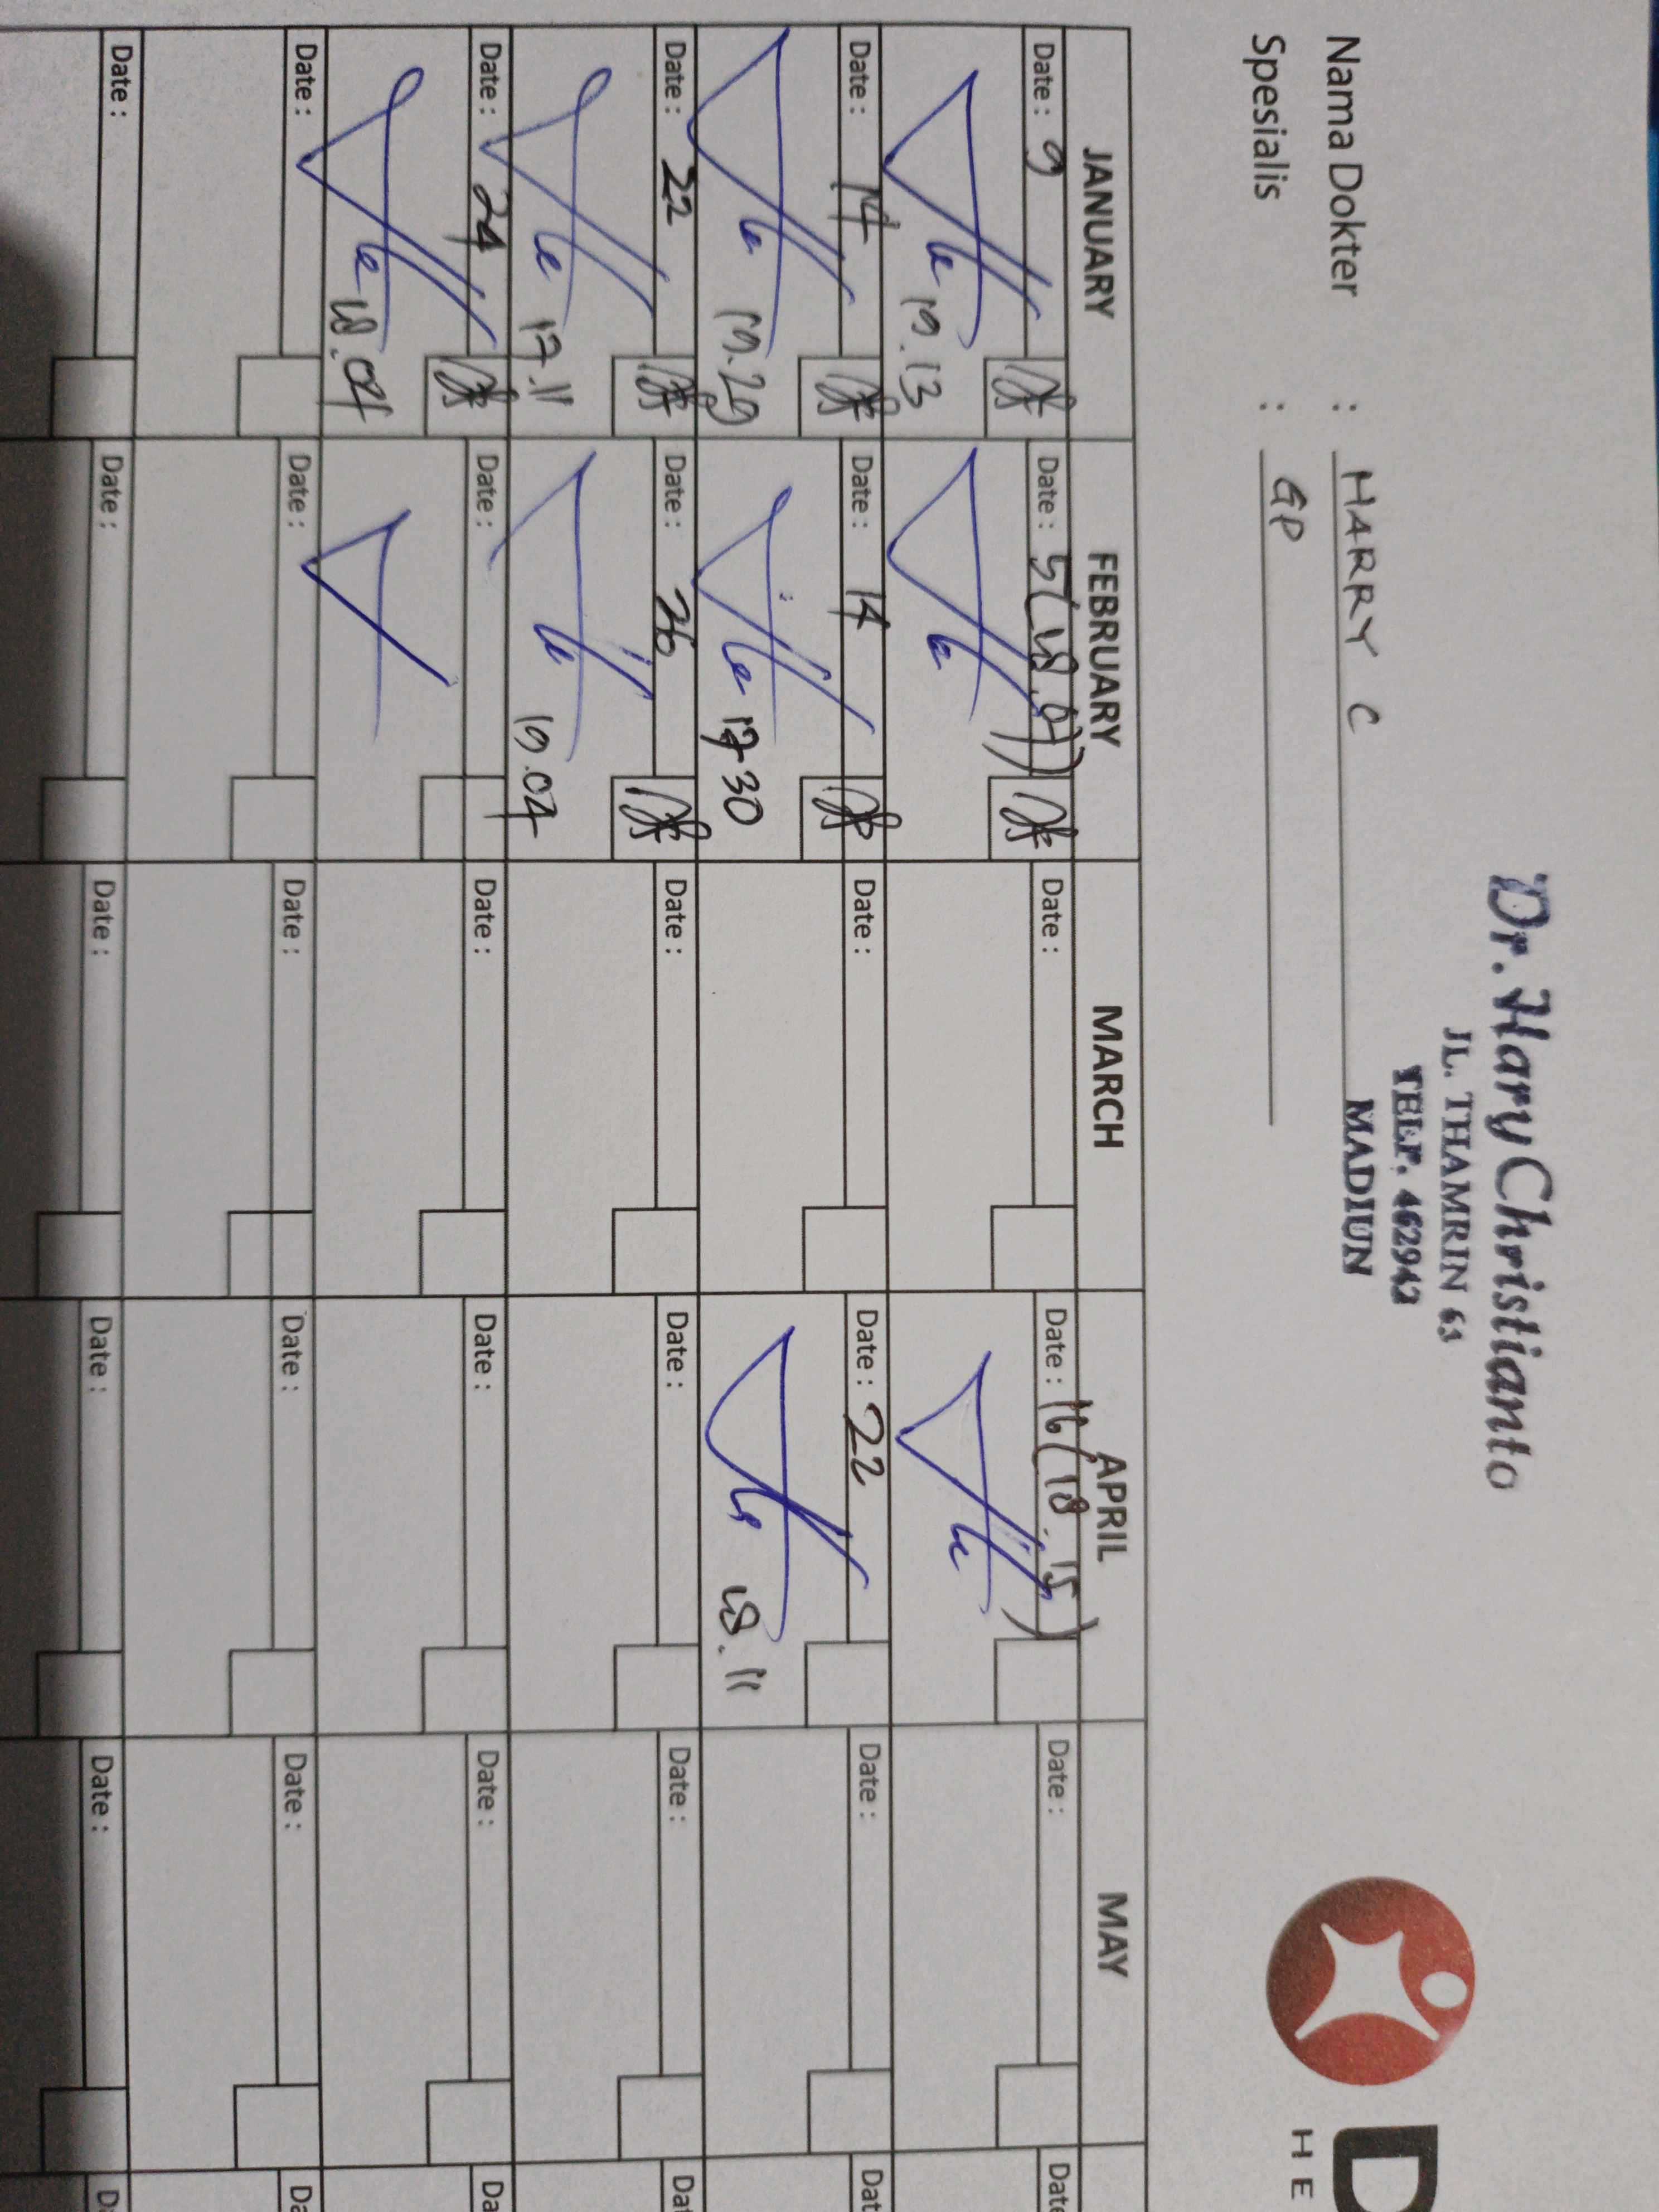 Dr. Hary Christianto
JL. THAMRIN 63
TELP. 462942
MADIUN
D
HE
Nama Dokter : HARRY C
Spesialis : GP
JANUARY FEBRUARY MARCH APRIL MAY
Date : 9 Date : 5 (18.07) Date : Date : 16 (18.15) Date : Date
19.13
Date : 14 Date : 14 Date : Date : 22 Date : Dat
19.29 17.30 18.11
Date : 22 Date : 26 Date : Date : Date : Dat
17.11 19.04
Date : 24 Date : Date : Date : Date : Da
18.04
Date : Date : Date : Date : Date : Da
Date : Date : Date : Date : Date : Da